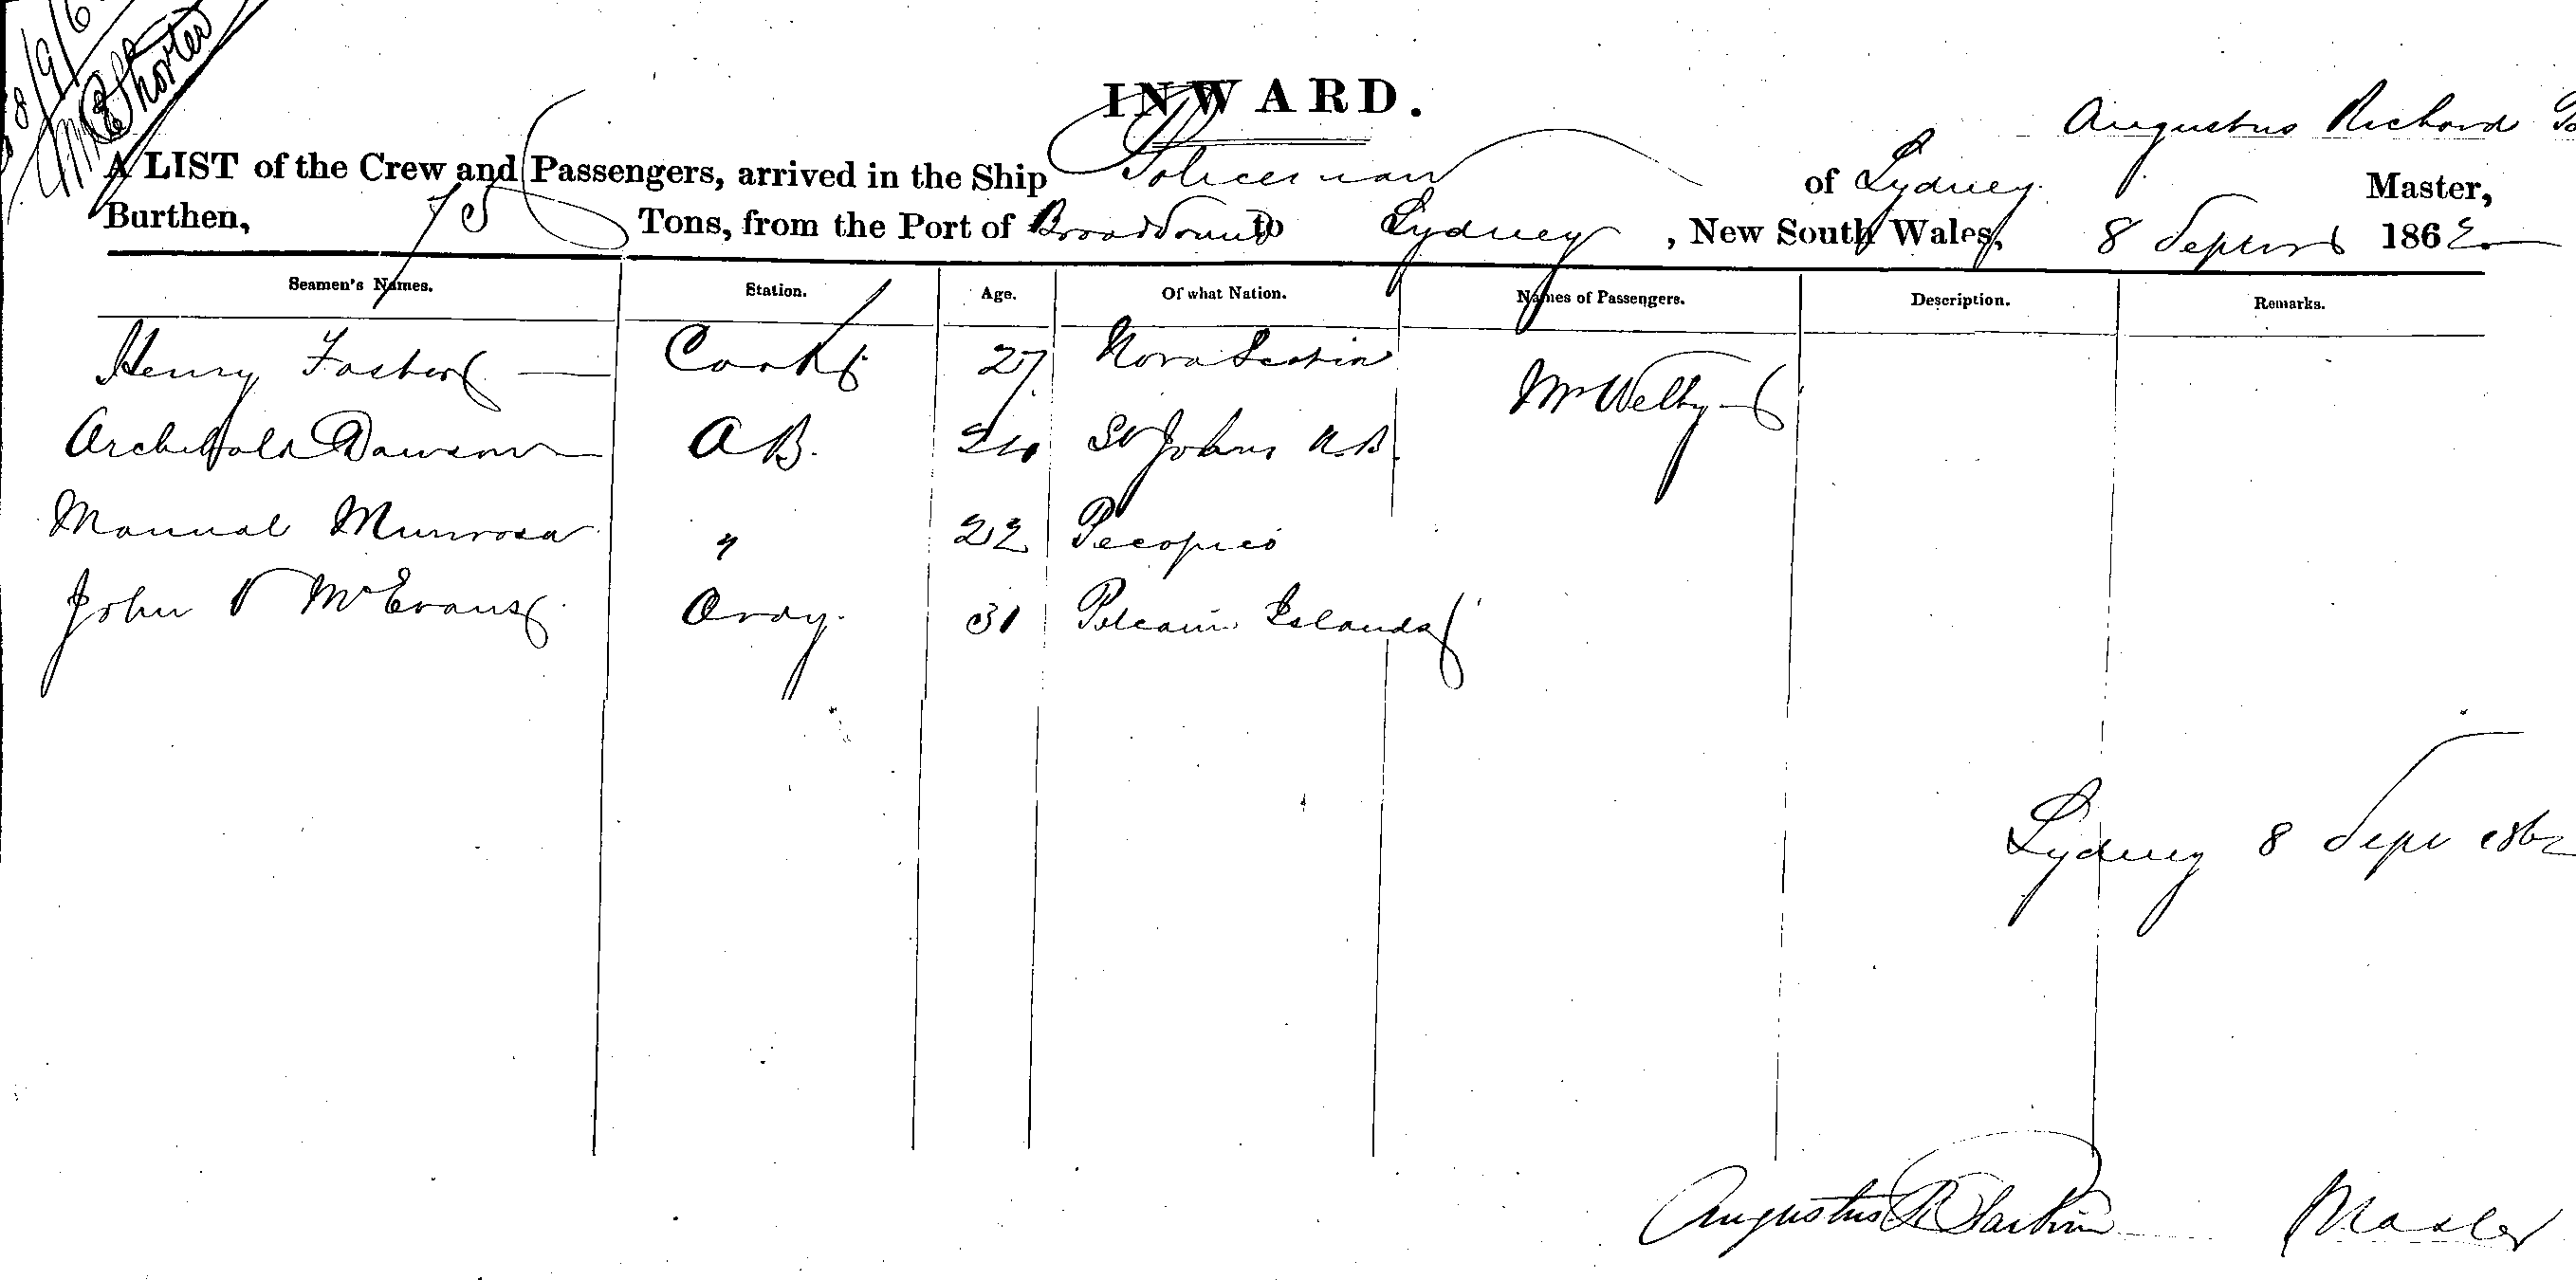 8/9/6
Shorter
INWARD.
Augustus Richard
A LIST of the Crew and Passengers, arrived in the Ship Policeman of Sydney Master,
Burthen, 75 Tons, from the Port of Broadsound to Sydney, New South Wales, 8 Septr 1862
Seamen's Names. Station. Age. Of what Nation. Names of Passengers. Description. Remarks.
Henry Foster Cook 27 Nova Scotia Mr Welby
Archibald Dawson AB. 24 St Johns N.B.
Manual Munrosa " 22 Pecopico
John V McEvans Ordy. 31 Pitcairn Islands
Sydney 8 Sept 1862
Augustus R Master